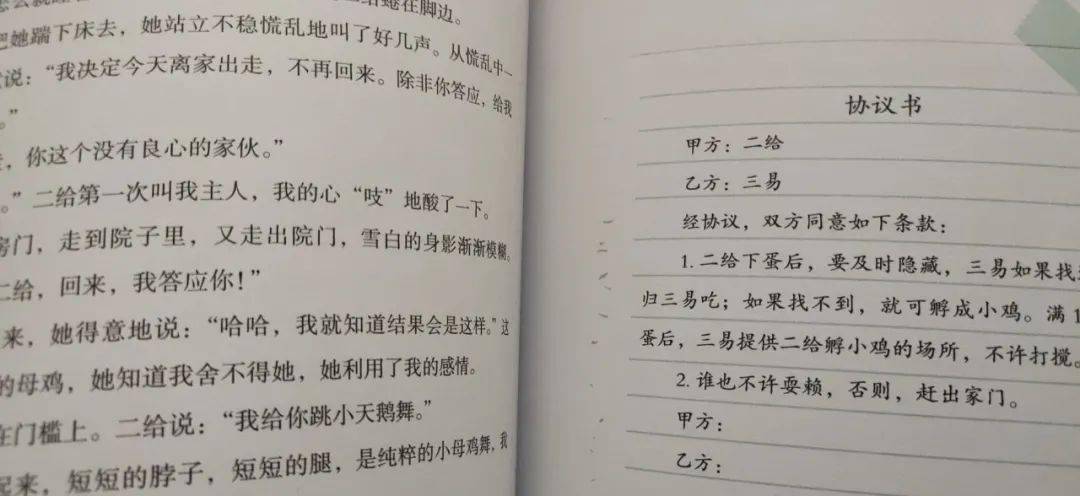 二给蜷在脚边。
把她踹下床去，她站立不稳慌乱地叫了好几声。从慌乱中一
说：“我决定今天离家出走，不再回来。除非你答应，给我
。”
，你这个没有良心的家伙。”
。”二给第一次叫我主人，我的心“吱”地酸了一下。
房门，走到院子里，又走出院门，雪白的身影渐渐模糊。
二给，回来，我答应你！”
来，她得意地说：“哈哈，我就知道结果会是这样。”这
的母鸡，她知道我舍不得她，她利用了我的感情。
在门槛上。二给说：“我给你跳小天鹅舞。”
起来，短短的脖子，短短的腿，是纯粹的小母鸡舞，我
协议书
甲方：二给
乙方：三易
经协议，双方同意如下条款：
1. 二给下蛋后，要及时隐藏，三易如果找
归三易吃；如果找不到，就可孵成小鸡。满1
蛋后，三易提供二给孵小鸡的场所，不许打搅。
2. 谁也不许耍赖，否则，赶出家门。
甲方：
乙方：